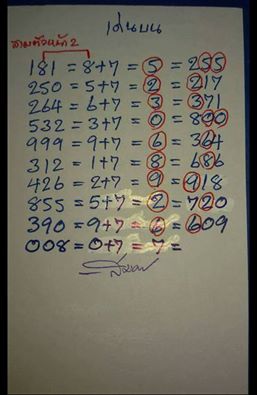 เด่นบน
สามตัวหน้า 2
181 = 8+7 = 5 = 255
250 = 5+7 = 2 = 217
264 = 6+7 = 3 = 371
532 = 3+7 = 0 = 800
999 = 9+7 = 6 = 364
312 = 1+7 = 8 = 686
426 = 2+7 = 9 = 918
855 = 5+7 = 2 = 720
390 = 9+7 = 6 = 609
008 = 0+7 = 7 =